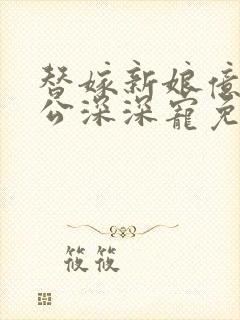 替嫁新娘億
公深深寵免
筱筱